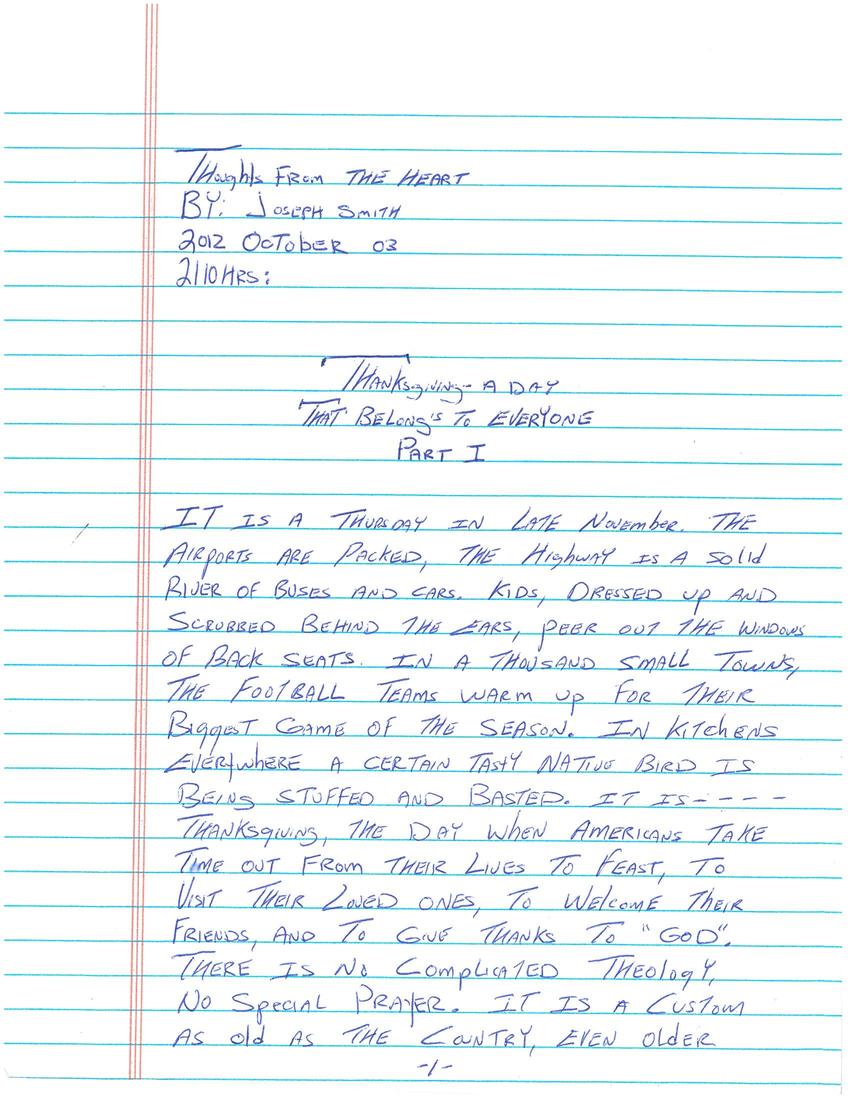 Thoughts From THE HEART
BY: Joseph Smith
2012 October 03
2110 HRS:
Thanksgiving - A DAY
THAT BELONg's To EVERYONE
PART I
IT IS A THURSDAY IN LATE November. THE
AIRPORTS ARE PACKED, THE Highway IS A Solid
RIVER OF BUSES AND CARS. KIDS, DRESSED up AND
SCRUBBED BEHIND THE EARS, PEER OUT THE WINDOWS
OF BACK SEATS. IN A THOUSAND SMALL TOWNS,
THE FOOTBALL TEAMS WARM up FOR THEIR
BIGGEST GAME OF THE SEASON. IN KITChENS
EVERYWHERE A CERTAIN TASTY NATIVE BIRD IS
BEING STUFFED AND BASTED. IT IS----
THANKSgiving, THE DAY WhEN AMERICANS TAKE
TIME OUT FROM THEIR LIVES TO FEAST, TO
VISIT THEIR LOVED ONES, TO WELCOME THEIR
FRIENDS, AND TO GIVE THANKS TO "GOD".
THERE IS NO COMPLICATED THEOlogy,
NO SpECIAL PRAYER. IT IS A CUSTOM
AS old AS THE COUNTRY, EVEN OLDER
-1-